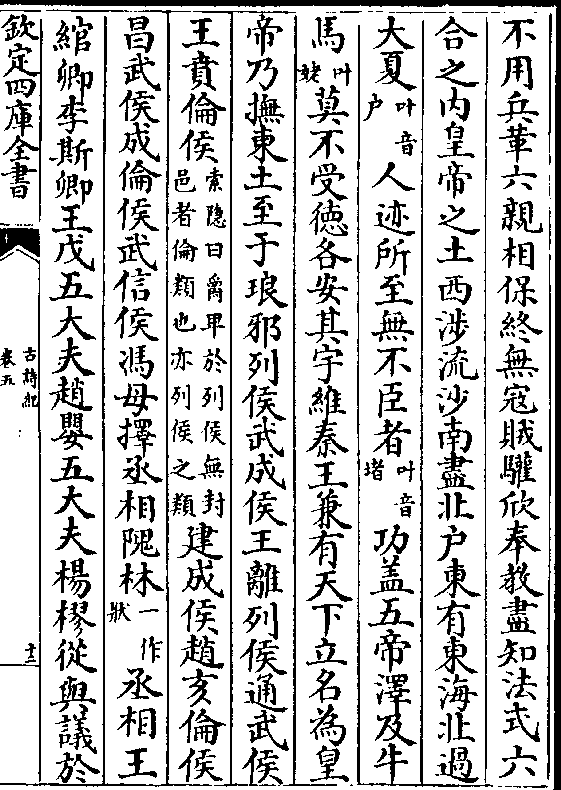 不用兵革六親相保終無寇賊驩欣奉教盡知法式六
合之内皇帝之土西涉流沙南盡北户東有東海北過
大夏叶音户人迹所至無不臣者叶音堵功盖五帝澤及牛
馬叶姥莫不受德各安其宇維秦王兼有天下立名為皇
帝乃撫東土至于琅邪列侯武成侯王離列侯通武侯
王賁倫侯索隐曰爵卑於列侯無封邑者倫類也亦列侯之類建成侯趙亥倫侯
昌武侯成倫侯武信侯馮毋擇丞相隗林一作狀丞相王
綰卿李斯卿王戊五大夫趙嬰五大夫楊樛從與議於
欽定四庫全書
古詩紀
卷五
十三